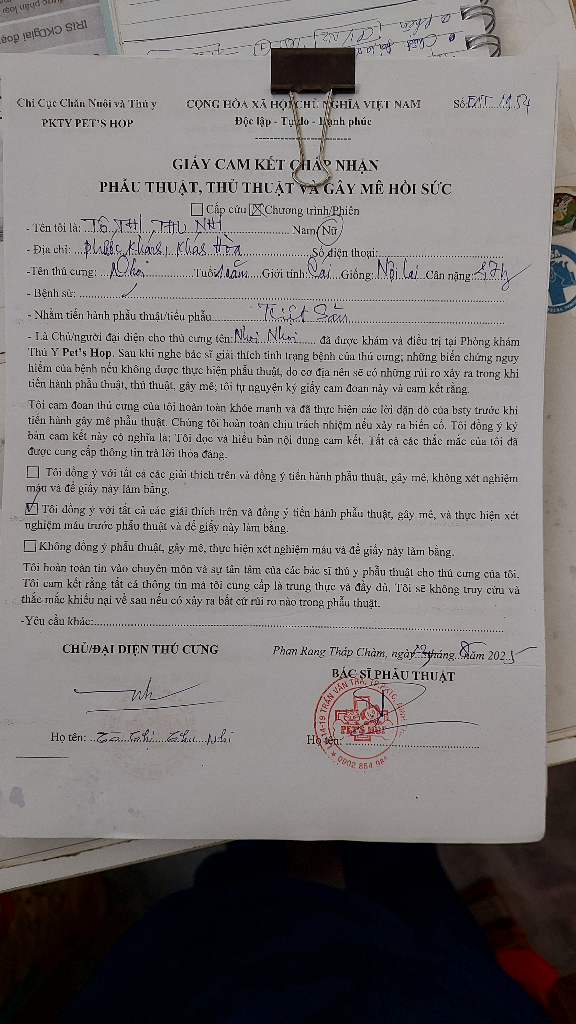 IRIS CKD
giai đoạn
Chi Cục Chăn Nuôi và Thú y
CỘNG HÒA XÃ HỘI CHỦ NGHĨA VIỆT NAM
Số:
PKTY PET'S HOP
Độc lập - Tự do - Hạnh phúc
GIẤY CAM KẾT CHẤP NHẬN
PHẪU THUẬT, THỦ THUẬT VÀ GÂY MÊ HỒI SỨC
Cấp cứu Chương trình/Phiên
- Tên tôi là: TÔ THỊ THU NHI Nam/Nữ
- Địa chỉ: Phước Kháng, Khánh Hòa Số điện thoại:
-Tên thú cưng: Nhoi Tuổi: 1 năm Giới tính: Cái Giống: Nội lai Cân nặng:
- Bệnh sử:
- Nhằm tiến hành phẫu thuật/tiểu phẫu: Triệt Sản
- Là Chủ/người đại diện cho thú cưng tên: Nhoi Nhoi đã được khám và điều trị tại Phòng khám
Thú Y Pet's Hop. Sau khi nghe bác sĩ giải thích tình trạng bệnh của thú cưng; những biến chứng nguy
hiểm của bệnh nếu không được thực hiện phẫu thuật, do cơ địa nên sẽ có những rủi ro xảy ra trong khi
tiến hành phẫu thuật, thủ thuật, gây mê; tôi tự nguyện ký giấy cam đoan này và cam kết rằng.
Tôi cam đoan thú cưng của tôi hoàn toàn khỏe mạnh và đã thực hiện các lời dặn dò của bsty trước khi
tiến hành gây mê phẫu thuật. Chúng tôi hoàn toàn chịu trách nhiệm nếu xảy ra biến cố. Tôi đồng ý ký
bản cam kết này có nghĩa là: Tôi đọc và hiểu bản nội dung cam kết. Tất cả các thắc mắc của tôi đã
được cung cấp thông tin trả lời thỏa đáng.
Tôi đồng ý với tất cả các giải thích trên và đồng ý tiến hành phẫu thuật, gây mê, không xét nghiệm
máu và để giấy này làm bằng.
Tôi đồng ý với tất cả các giải thích trên và đồng ý tiến hành phẫu thuật, gây mê, và thực hiện xét
nghiệm máu trước phẫu thuật và để giấy này làm bằng.
Không đồng ý phẫu thuật, gây mê, thực hiện xét nghiệm máu và để giấy này làm bằng.
Tôi hoàn toàn tin vào chuyên môn và sự tận tâm của các bác sĩ thú y phẫu thuật cho thú cưng của tôi.
Tôi cam kết rằng tất cả thông tin mà tôi cung cấp là trung thực và đầy đủ. Tôi sẽ không truy cứu và
thắc mắc khiếu nại về sau nếu có xảy ra bất cứ rủi ro nào trong phẫu thuật.
-Yêu cầu khác:
CHỦ/ĐẠI DIỆN THÚ CƯNG
Phan Rang Tháp Chàm, ngày tháng 8 năm 2025
BÁC SĨ PHẪU THUẬT
PET'S HOP
Họ tên: Tô Thị Thu Nhi
Họ tên: